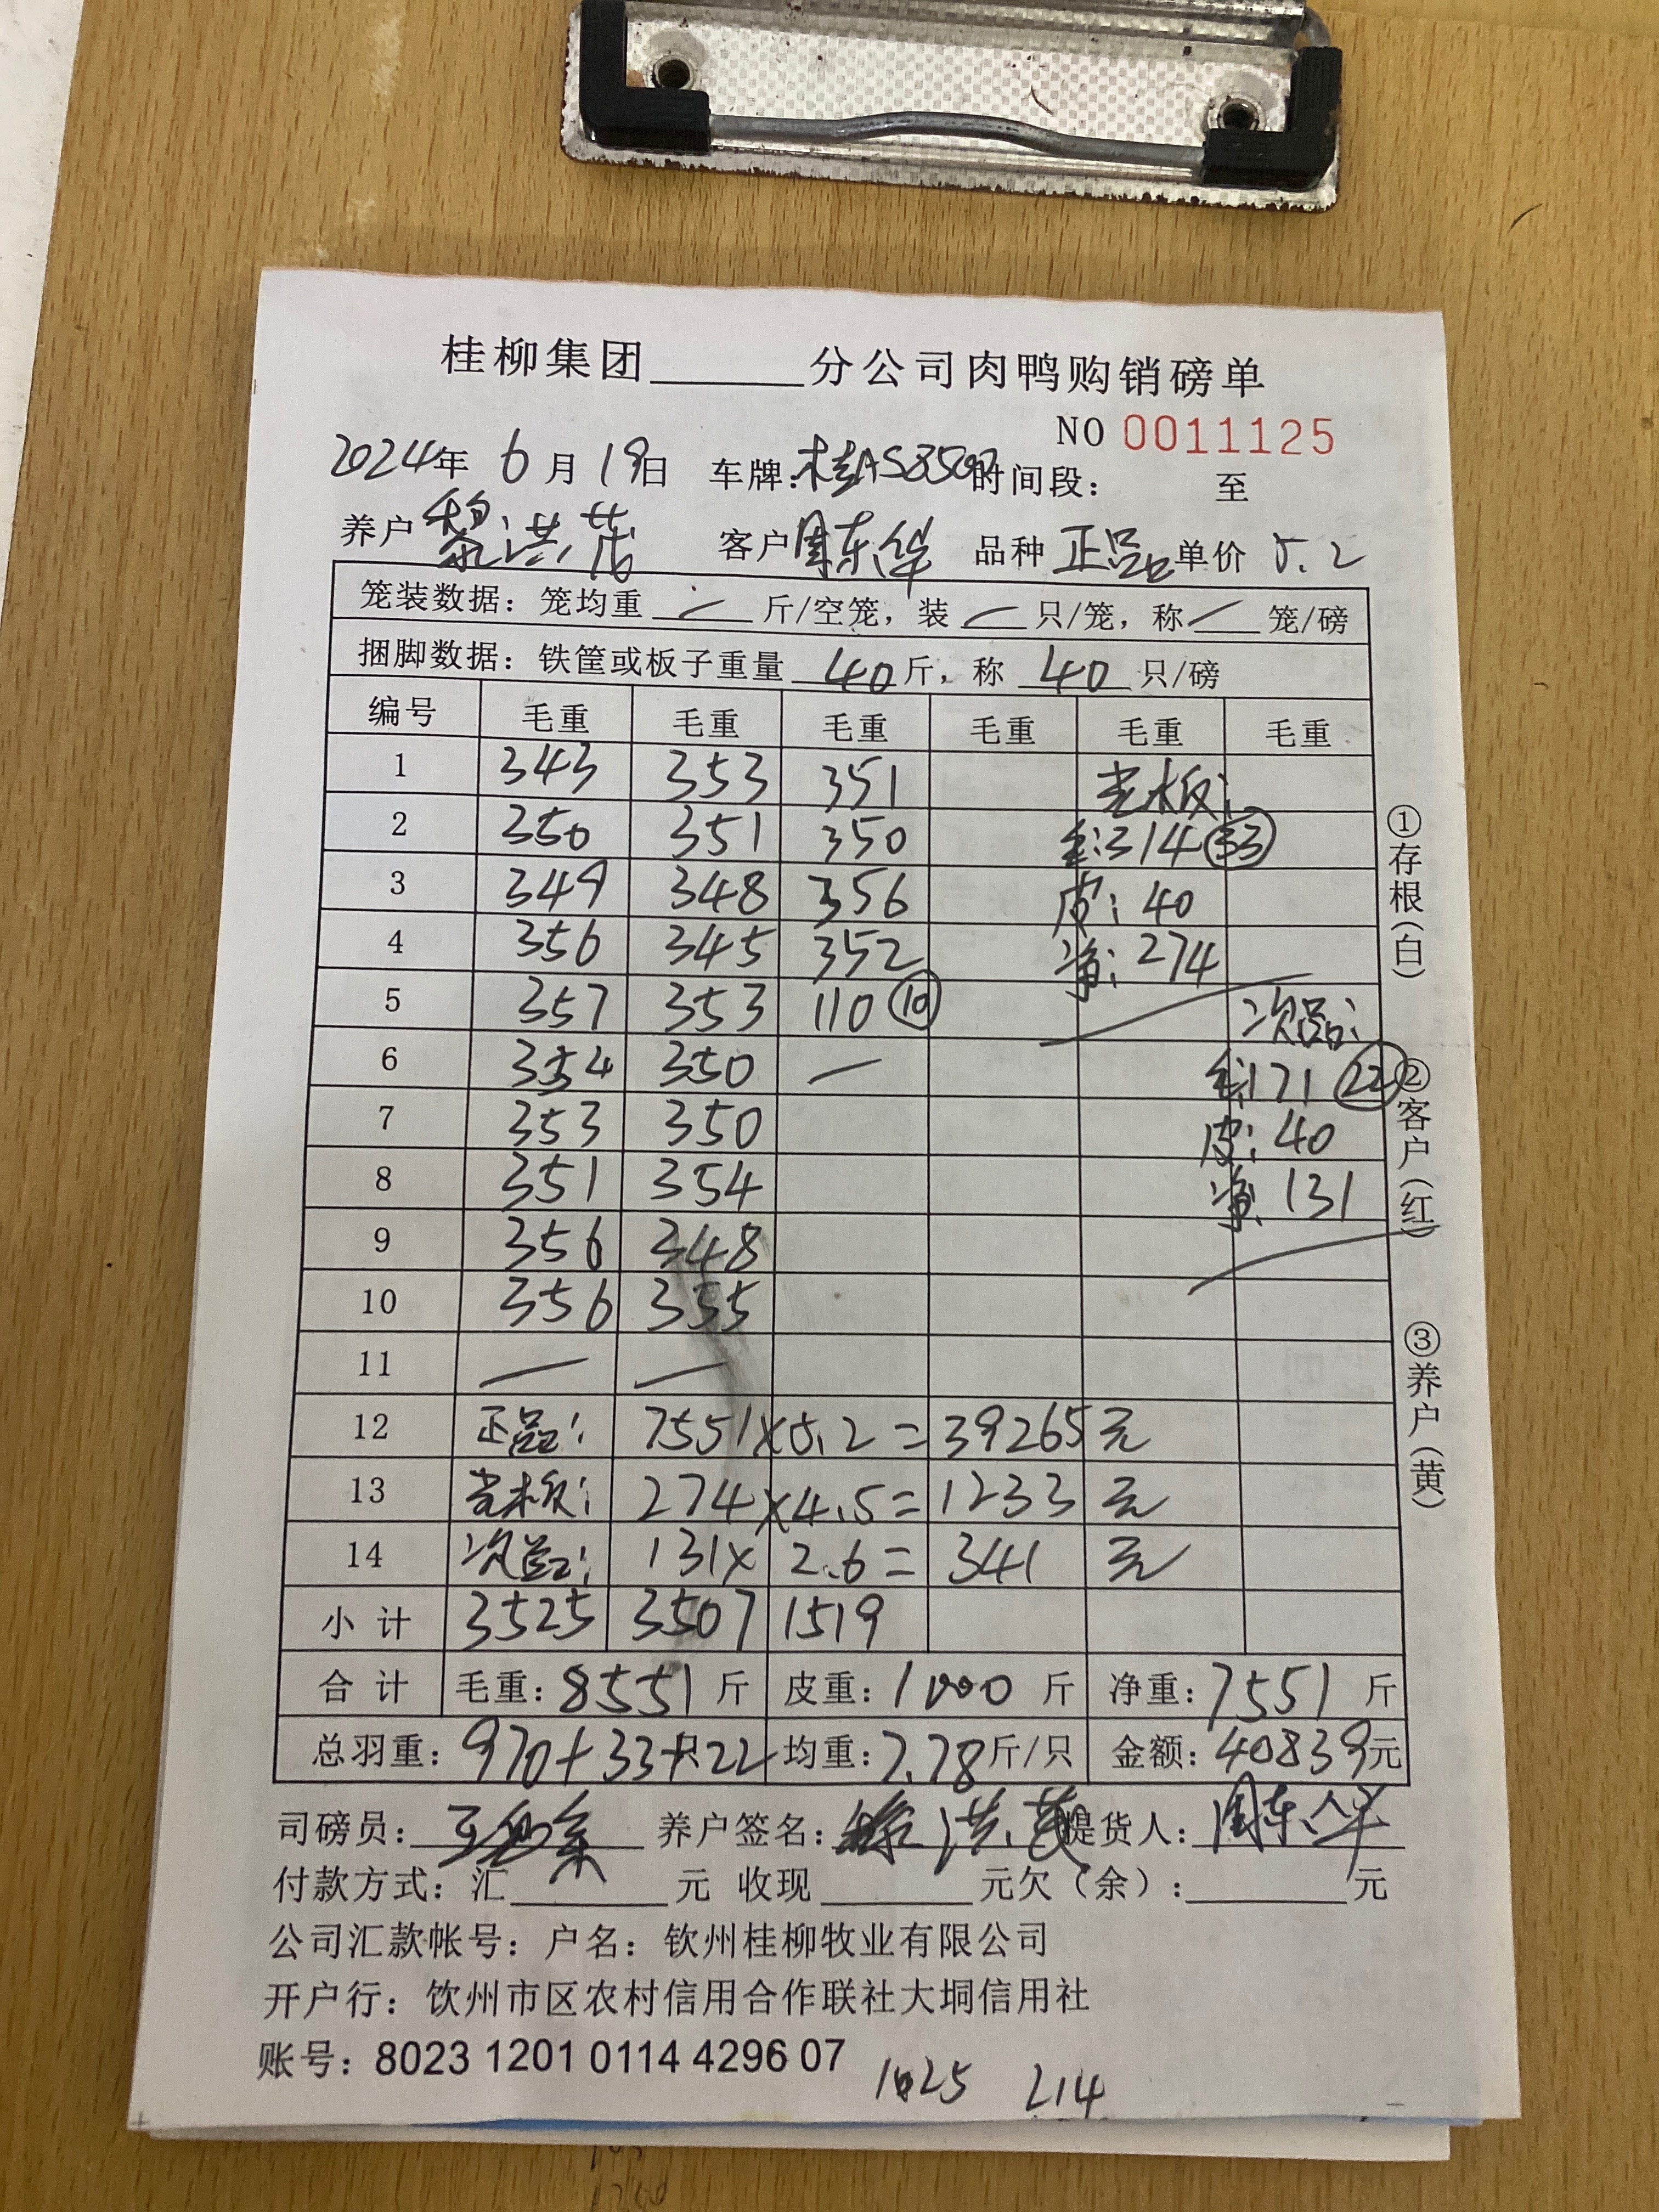 桂柳集团______分公司肉鸭购销磅单
NO 0011125
2024年 6月19日 车牌:桂A 时间段: 至
养户 黎洪茂 客户 周东华 品种 正品 单价 5.2
笼装数据: 笼均重 — 斤/空笼, 装 — 只/笼, 称 — 笼/磅
捆脚数据: 铁筐或板子重量 40斤, 称 40 只/磅
编号 毛重 毛重 毛重 毛重 毛重 毛重
1 343 353 351 光板:
2 350 351 350 毛:314 (33)
3 349 348 356 皮:40
4 356 345 352 净:274
5 357 353 110 (10) 次品:
6 354 350 — 毛:171 (22)
7 353 350 皮:40
8 351 354 净:131
9 356 348
10 356 355
11 — —
12 正品: 7551×5.2=39265元
13 光板: 274×4.5=1233元
14 次品: 131×2.6=341元
小计 3525 3507 1519
合计 毛重:8551斤 皮重:1000斤 净重:7551斤
总羽重:970+33+22只 均重:7.78斤/只 金额:40839元
司磅员: 养户签名:黎洪茂 提货人:周东华
付款方式:汇______元 收现______元欠(余):______元
公司汇款帐号:户名:钦州桂柳牧业有限公司
开户行:钦州市区农村信用合作联社大垌信用社
账号:8023 1201 0114 4296 07
1025 214
①存根(白)
②客户(红)
③养户(黄)